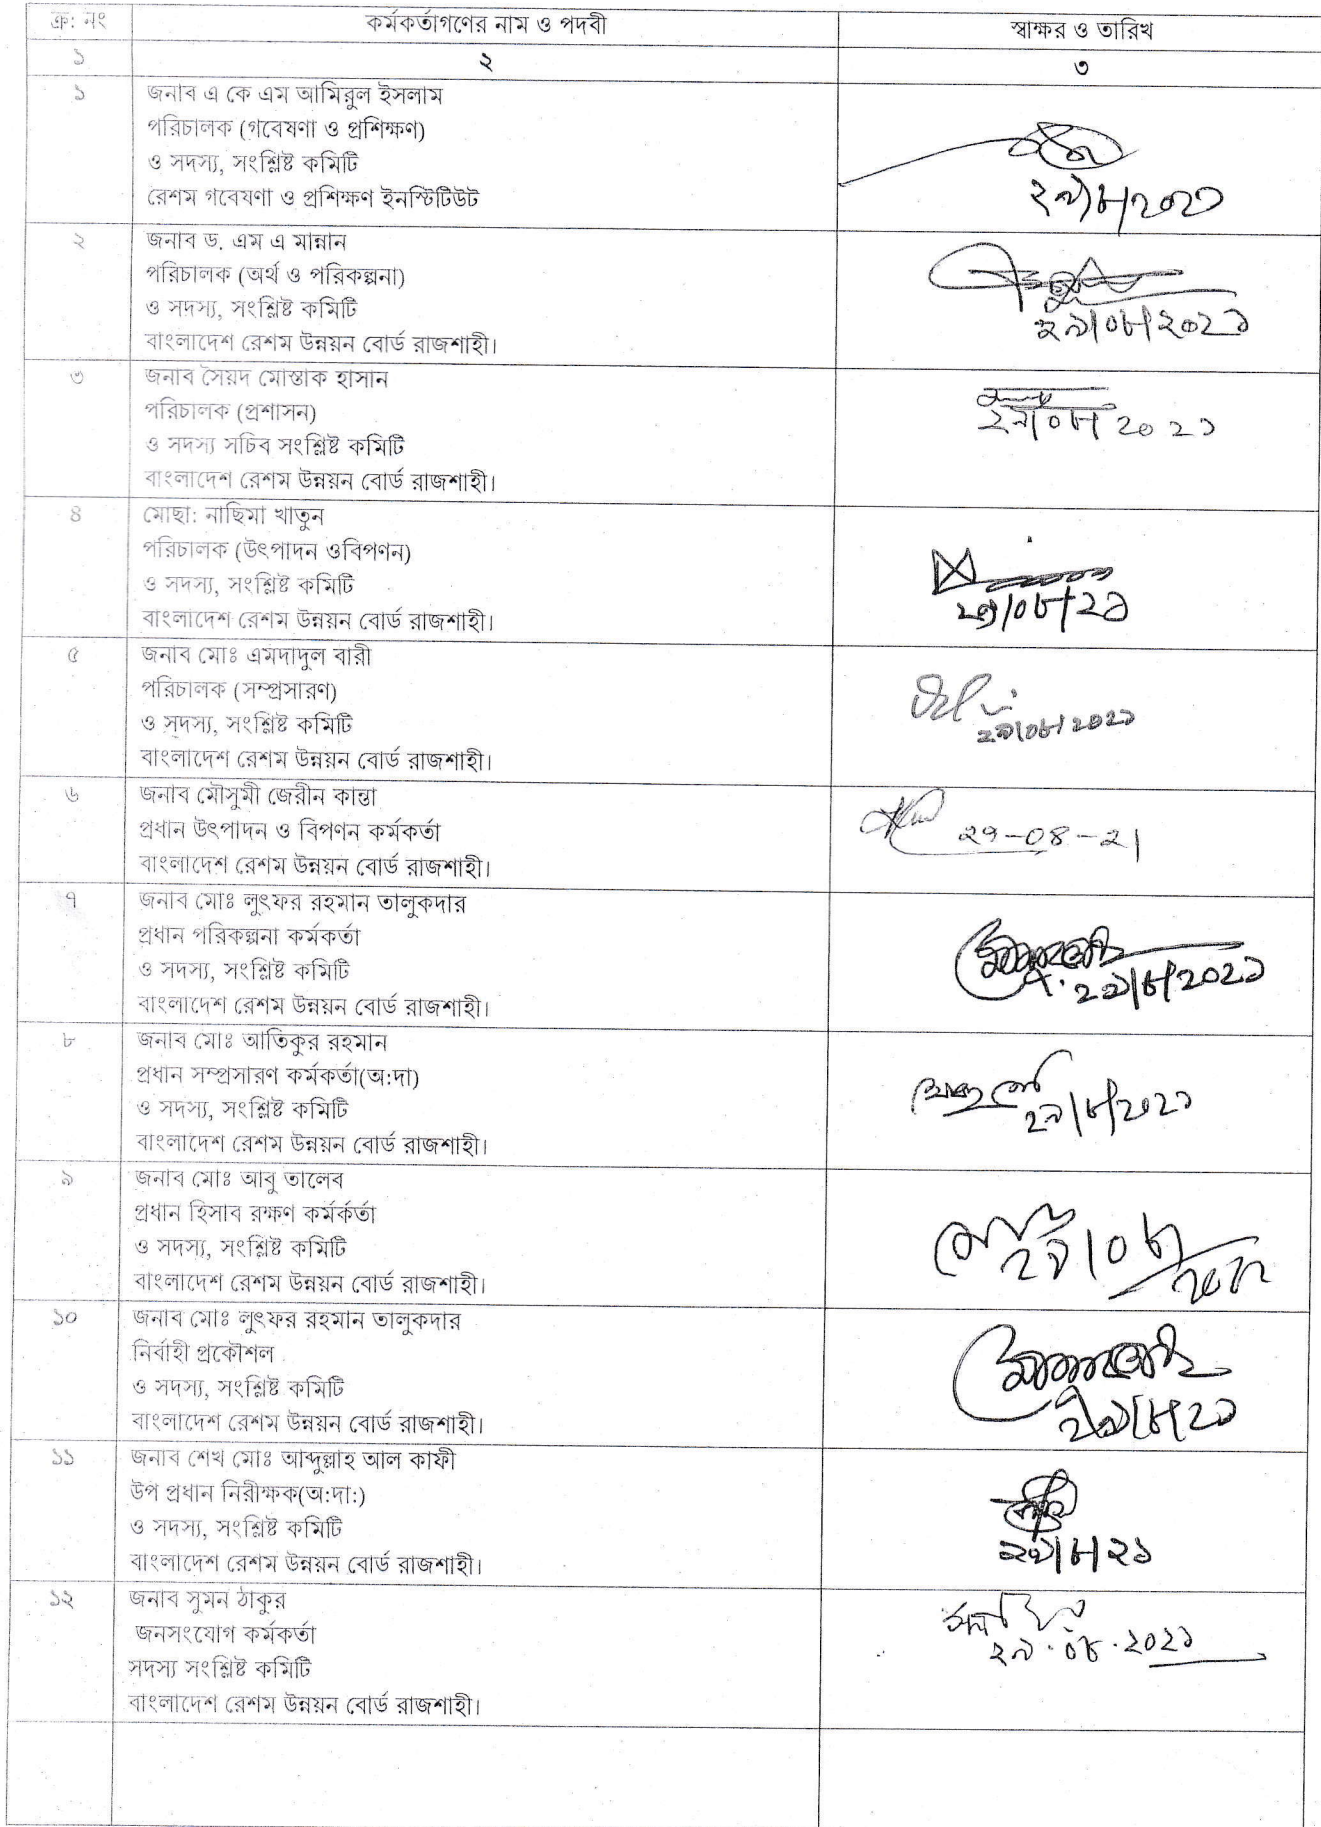 ক্র: নং কর্মকর্তাগণের নাম ও পদবী স্বাক্ষর ও তারিখ
১ ২ ৩
১ জনাব এ কে এম আমিরুল ইসলাম
পরিচালক (গবেষণা ও প্রশিক্ষণ)
ও সদস্য, সংশ্লিষ্ট কমিটি
রেশম গবেষণা ও প্রশিক্ষণ ইনস্টিটিউট
২৯/৮/২০২১
২ জনাব ড. এম এ মান্নান
পরিচালক (অর্থ ও পরিকল্পনা)
ও সদস্য, সংশ্লিষ্ট কমিটি
বাংলাদেশ রেশম উন্নয়ন বোর্ড রাজশাহী।
২৯/০৮/২০২১
৩ জনাব সৈয়দ মোস্তাক হাসান
পরিচালক (প্রশাসন)
ও সদস্য সচিব সংশ্লিষ্ট কমিটি
বাংলাদেশ রেশম উন্নয়ন বোর্ড রাজশাহী।
২৯/০৮/২০২১
৪ মোছা: নাছিমা খাতুন
পরিচালক (উৎপাদন ওবিপণন)
ও সদস্য, সংশ্লিষ্ট কমিটি
বাংলাদেশ রেশম উন্নয়ন বোর্ড রাজশাহী।
২৯/০৮/২১
৫ জনাব মোঃ এমদাদুল বারী
পরিচালক (সম্প্রসারণ)
ও সদস্য, সংশ্লিষ্ট কমিটি
বাংলাদেশ রেশম উন্নয়ন বোর্ড রাজশাহী।
২৯/০৮/২০২১
৬ জনাব মৌসুমী জেরীন কান্তা
প্রধান উৎপাদন ও বিপণন কর্মকর্তা
বাংলাদেশ রেশম উন্নয়ন বোর্ড রাজশাহী।
29-08-21
৭ জনাব মোঃ লুৎফর রহমান তালুকদার
প্রধান পরিকল্পনা কর্মকর্তা
ও সদস্য, সংশ্লিষ্ট কমিটি
বাংলাদেশ রেশম উন্নয়ন বোর্ড রাজশাহী।
২৯/৮/২০২১
৮ জনাব মোঃ আতিকুর রহমান
প্রধান সম্প্রসারণ কর্মকর্তা(অ:দা)
ও সদস্য, সংশ্লিষ্ট কমিটি
বাংলাদেশ রেশম উন্নয়ন বোর্ড রাজশাহী।
২৯/৮/২০২১
৯ জনাব মোঃ আবু তালেব
প্রধান হিসাব রক্ষণ কর্মর্কর্তা
ও সদস্য, সংশ্লিষ্ট কমিটি
বাংলাদেশ রেশম উন্নয়ন বোর্ড রাজশাহী।
২৯/০৮
১০ জনাব মোঃ লুৎফর রহমান তালুকদার
নির্বাহী প্রকৌশল
ও সদস্য, সংশ্লিষ্ট কমিটি
বাংলাদেশ রেশম উন্নয়ন বোর্ড রাজশাহী।
২৯/৮/২১
১১ জনাব শেখ মোঃ আব্দুল্লাহ আল কাফী
উপ প্রধান নিরীক্ষক(অ:দা:)
ও সদস্য, সংশ্লিষ্ট কমিটি
বাংলাদেশ রেশম উন্নয়ন বোর্ড রাজশাহী।
২৯/৮/২১
১২ জনাব সুমন ঠাকুর
জনসংযোগ কর্মকর্তা
সদস্য সংশ্লিষ্ট কমিটি
বাংলাদেশ রেশম উন্নয়ন বোর্ড রাজশাহী।
২৯.০৮.২০২১